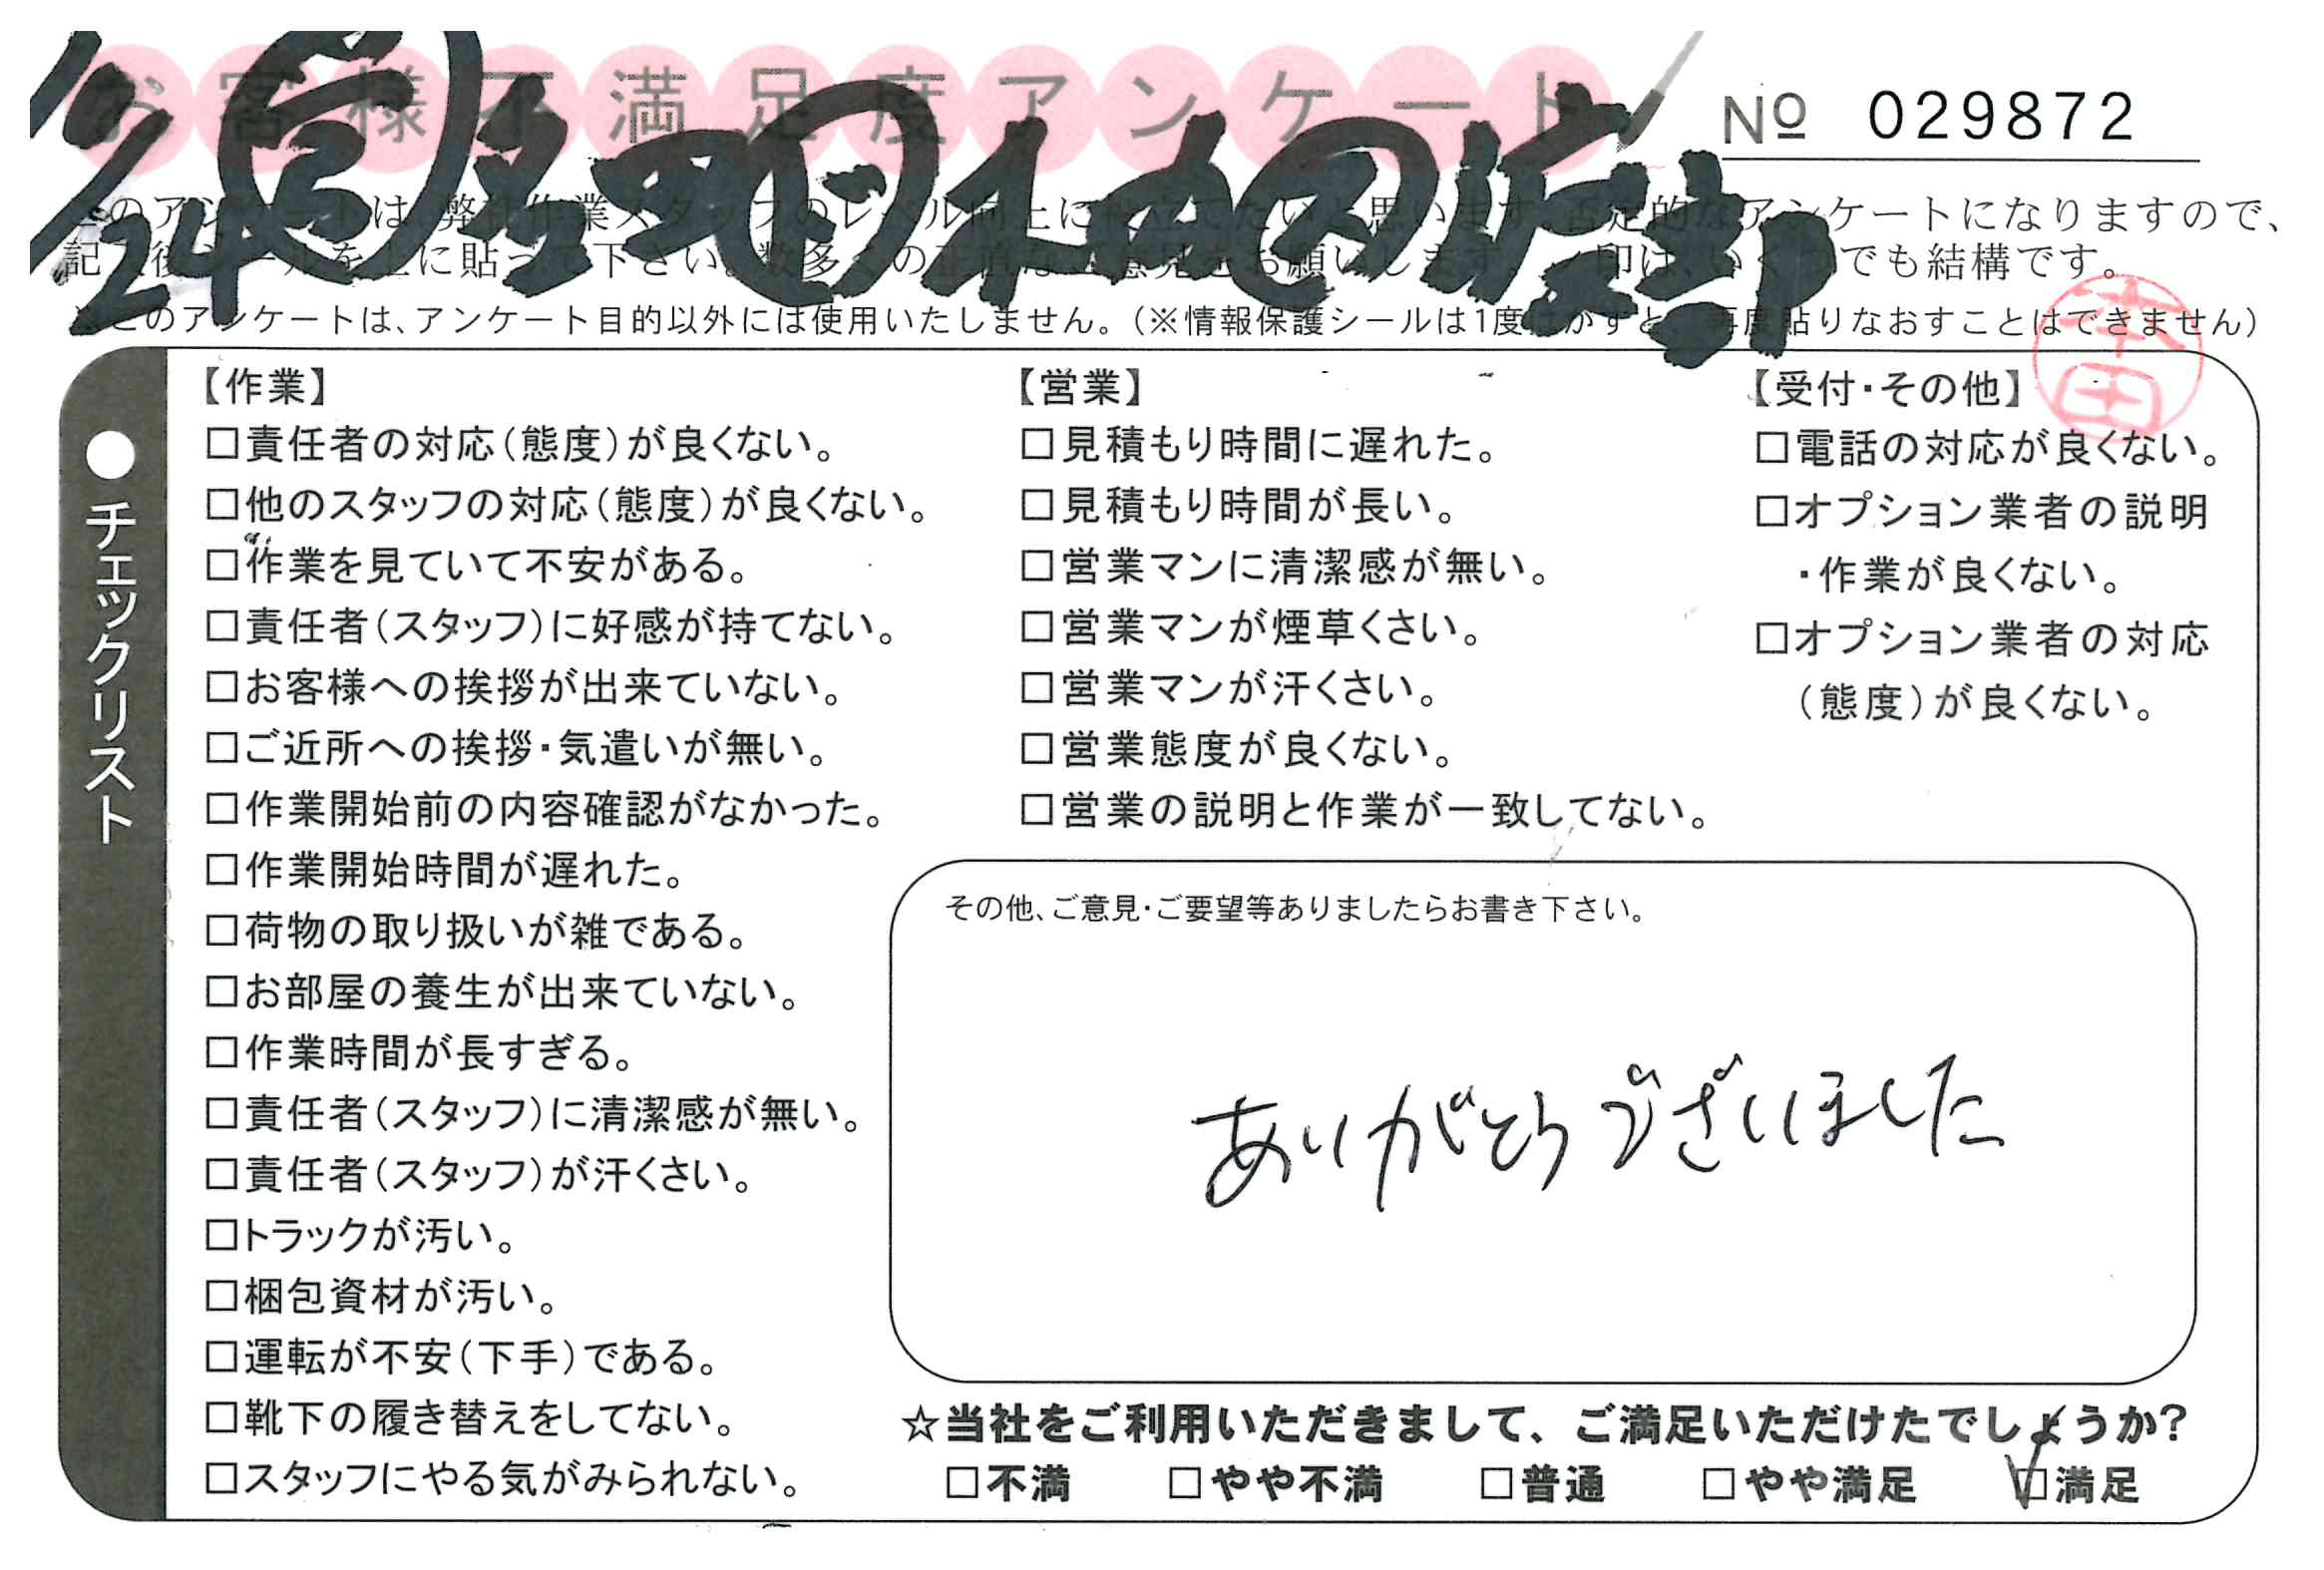 お客様不満足度アンケート
№ 029872
1/24
このアンケートは、弊社作業スタッフのレベル向上に役立てたいと思います。否定的なアンケートになりますので、
記入後シールを上に貼って下さい。数多くの正直なご意見をお願いします。✓印は、いくつでも結構です。
※このアンケートは、アンケート目的以外には使用いたしません。(※情報保護シールは1度はがすと、再度貼りなおすことはできません)
本田
●チェックリスト
【作業】
□責任者の対応(態度)が良くない。
□他のスタッフの対応(態度)が良くない。
□作業を見ていて不安がある。
□責任者(スタッフ)に好感が持てない。
□お客様への挨拶が出来ていない。
□ご近所への挨拶・気遣いが無い。
□作業開始前の内容確認がなかった。
□作業開始時間が遅れた。
□荷物の取り扱いが雑である。
□お部屋の養生が出来ていない。
□作業時間が長すぎる。
□責任者(スタッフ)に清潔感が無い。
□責任者(スタッフ)が汗くさい。
□トラックが汚い。
□梱包資材が汚い。
□運転が不安(下手)である。
□靴下の履き替えをしてない。
□スタッフにやる気がみられない。
【営業】
□見積もり時間に遅れた。
□見積もり時間が長い。
□営業マンに清潔感が無い。
□営業マンが煙草くさい。
□営業マンが汗くさい。
□営業態度が良くない。
□営業の説明と作業が一致してない。
【受付・その他】
□電話の対応が良くない。
□オプション業者の説明
・作業が良くない。
□オプション業者の対応
(態度)が良くない。
その他、ご意見・ご要望等ありましたらお書き下さい。
ありがとうございました
☆当社をご利用いただきまして、ご満足いただけたでしょうか?
□不満 □やや不満 □普通 □やや満足 ☑満足